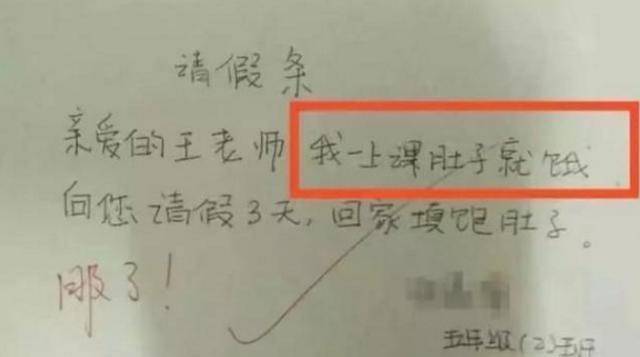 请假条
亲爱的王老师 我一上课肚子就饿.
向您请假3天，回家填饱肚子。
服了！
五年级(2)班